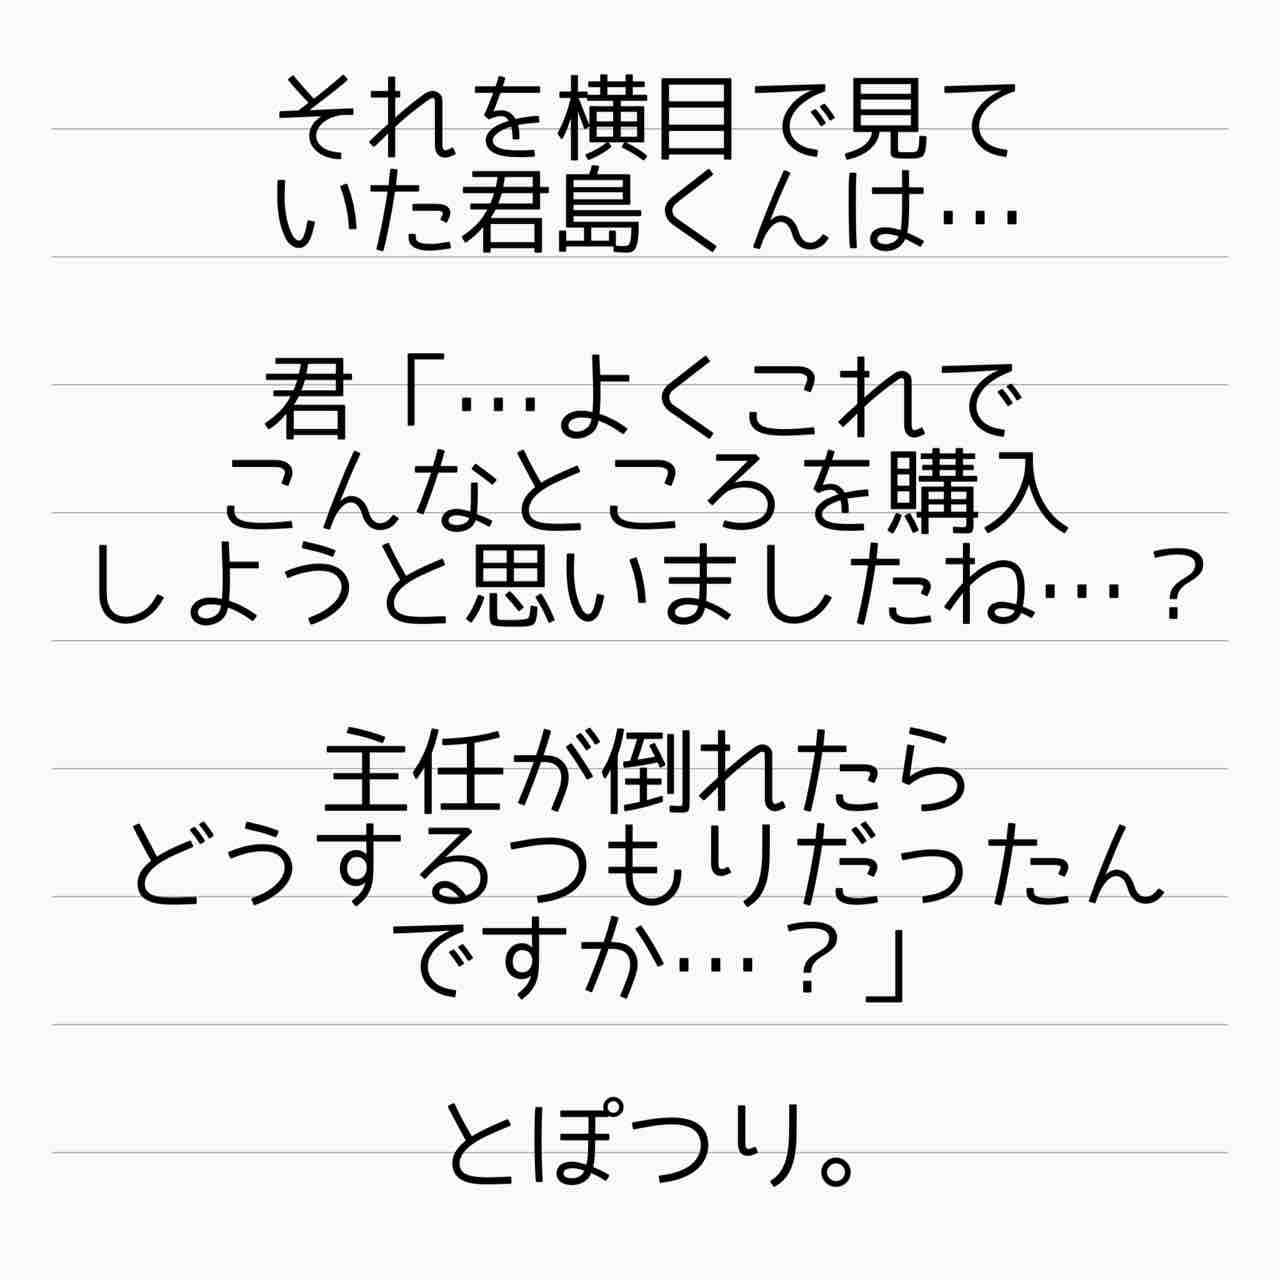 それを横目で見て
いた君島くんは…
君「…よくこれで
こんなところを購入
しようと思いましたね…？
主任が倒れたら
どうするつもりだったん
ですか…？」
とぽつり。